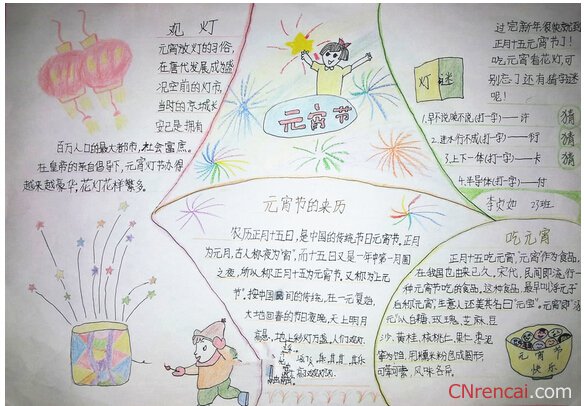 观 灯
元宵放灯的习俗,
在唐代发展成为盛
况空前的灯市,
当时的京城长
安已是拥有
百万人口的最大都市,社会富庶。
在皇帝的亲自倡导下,元宵灯节办得
越来越豪华,花灯花样繁多。
元宵节
过完新年很快就到
正月十五元宵节了!
吃元宵看花灯,可
别忘了还有猜字谜
呢!
灯谜
猜
猜
猜
1.早不说晚不说(打一字)——许
2.进水行不成(打一字)——衍
3.上下一体(打一字)——卡
4.半导体(打一字)——付
23班
元宵节的来历
农历正月十五日,是中国的传统节日元宵节。正月
为元月,古人称夜为"宵",而十五日又是一年中第一个月圆
之夜,所以称正月十五为元宵节。又称为上元
节。按中国民间的传统,在一元复始,
大地回春的节日夜晚,天上明月
高悬,地上彩灯万盏,人们观灯、
吃元宵
正月十五吃元宵,"元宵"作为食品,
在我国也由来已久。宋代,民间即流行一
种元宵节吃的食品。这种食品,最早叫浮元子
后称元宵,生意人还美其名曰"元宝"。元宵即"汤
元"以白糖、玫瑰、芝麻、豆
沙、黄桂、核桃仁、果仁、枣泥
等为馅,用糯米粉包成圆形,
可荤可素,风味各异。
元宵节
快乐
CNrencai.com